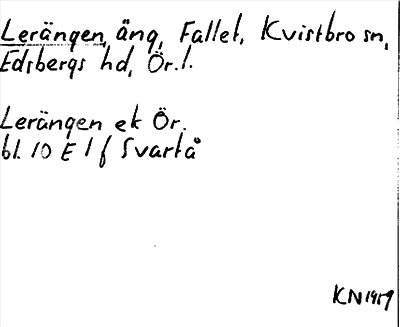 Lerängen, äng, Fallet, Kvistbro sn,
Edsbergs hd, Ör.l.
Lerängen ek Ör.
bl. 10 E 1 f Svartå